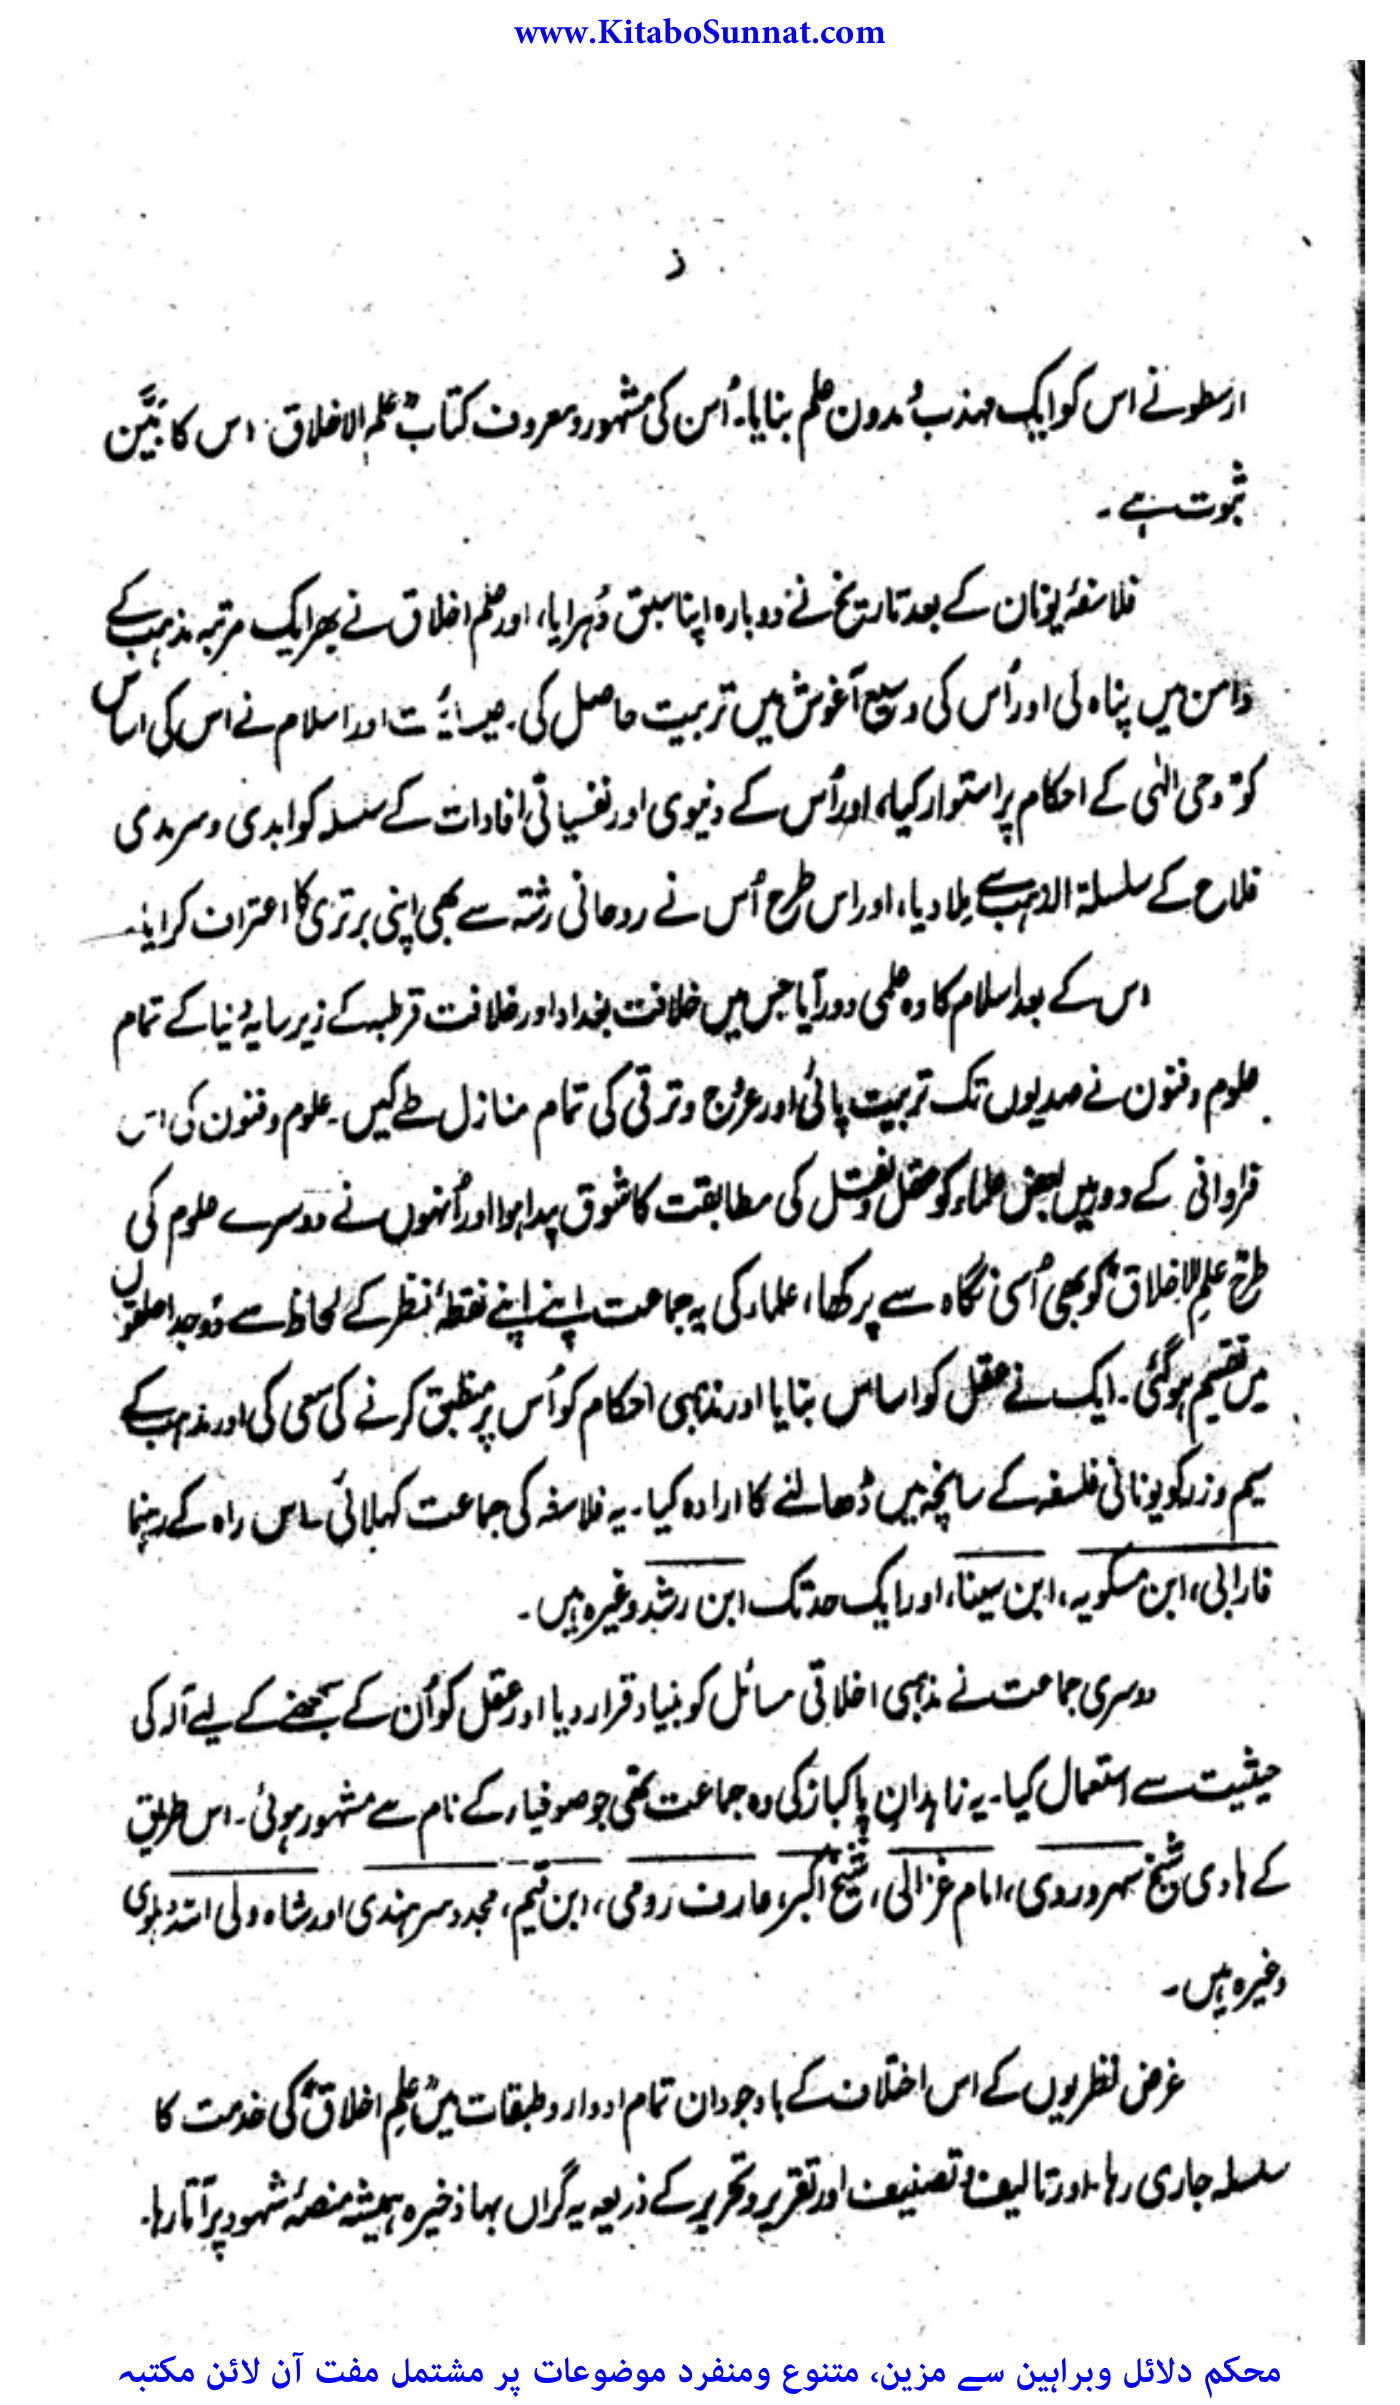 www.KitaboSunnat.com
ز
ارسطو نے اس کو ایک مہذب و مدون علم بنایا۔ اُس کی مشہور و معروف کتاب "علم الاخلاق" اس کا بیّن
ثبوت ہے۔
فلاسفۂ یونان کے بعد تاریخ نے دوبارہ اپنا سبق دُہرایا، اور علم اخلاق نے پھر ایک مرتبہ مذہب کے
دامن میں پناہ لی اور اُس کی وسیع آغوش میں تربیت حاصل کی۔ عیسائیت اور اسلام نے اس کی اساس
کو "وحی الٰہی کے احکام پر استوار کیا، اور اُس کے دنیوی اور نفسیاتی افادات کے سلسلہ کو ابدی و سرمدی
فلاح کے سلسلۃ الذہب سے ملا دیا، اور اس طرح اُس نے روحانی رشتہ سے بھی اپنی برتری کا اعتراف کرایا۔
اس کے بعد اسلام کا وہ علمی دور آیا جس میں خلافت بغداد اور خلافت قرطبہ کے زیر سایہ دُنیا کے تمام
علوم و فنون نے صدیوں تک تربیت پائی اور عروج و ترقی کی تمام منازل طے کیں۔ علوم و فنون کی اس
فراوانی کے دور میں بعض علماء کو عقل و نقل کی مطابقت کا شوق پیدا ہوا اور اُنہوں نے دوسرے علوم کی
طرح "علم الاخلاق" کو بھی اُسی نگاہ سے پرکھا، علماء کی یہ جماعت اپنے اپنے نقطۂ نظر کے لحاظ سے دو جدا حلقوں
میں تقسیم ہو گئی۔ ایک نے عقل کو اساس بنایا اور مذہبی احکام کو اُس پر منطبق کرنے کی سعی کی اور مذہب کے
سیم و زر کو یونانی فلسفہ کے سانچہ میں ڈھالنے کا ارادہ کیا۔ یہ فلاسفہ کی جماعت کہلائی۔ اس راہ کے رہنما
فارابی، ابن مسکویہ، ابن سینا، اور ایک حد تک ابن رشد وغیرہ ہیں۔
دوسری جماعت نے مذہبی اخلاقی مسائل کو بنیاد قرار دیا اور عقل کو اُن کے سمجھنے کے لیے آلہ کی
حیثیت سے استعمال کیا۔ یہ زاہدانِ پاکباز کی وہ جماعت تھی جو صوفیاء کے نام سے مشہور ہوئی۔ اس طریق
کے ہادی شیخ سہروردی، امام غزالی، شیخ اکبر، عارف رومی، ابن قیم، مجدد سرہندی اور شاہ ولی اللہ دہلوی
وغیرہ ہیں۔
غرض نظریوں کے اس اختلاف کے باوجود ان تمام ادوار و طبقات میں "علم اخلاق" کی خدمت کا
سلسلہ جاری رہا۔ اور تالیف و تصنیف اور تقریر و تحریر کے ذریعہ یہ گراں بہا ذخیرہ ہمیشہ منصۂ شہود پر آتا رہا۔
محکم دلائل وبراہین سے مزین، متنوع ومنفرد موضوعات پر مشتمل مفت آن لائن مکتبہ